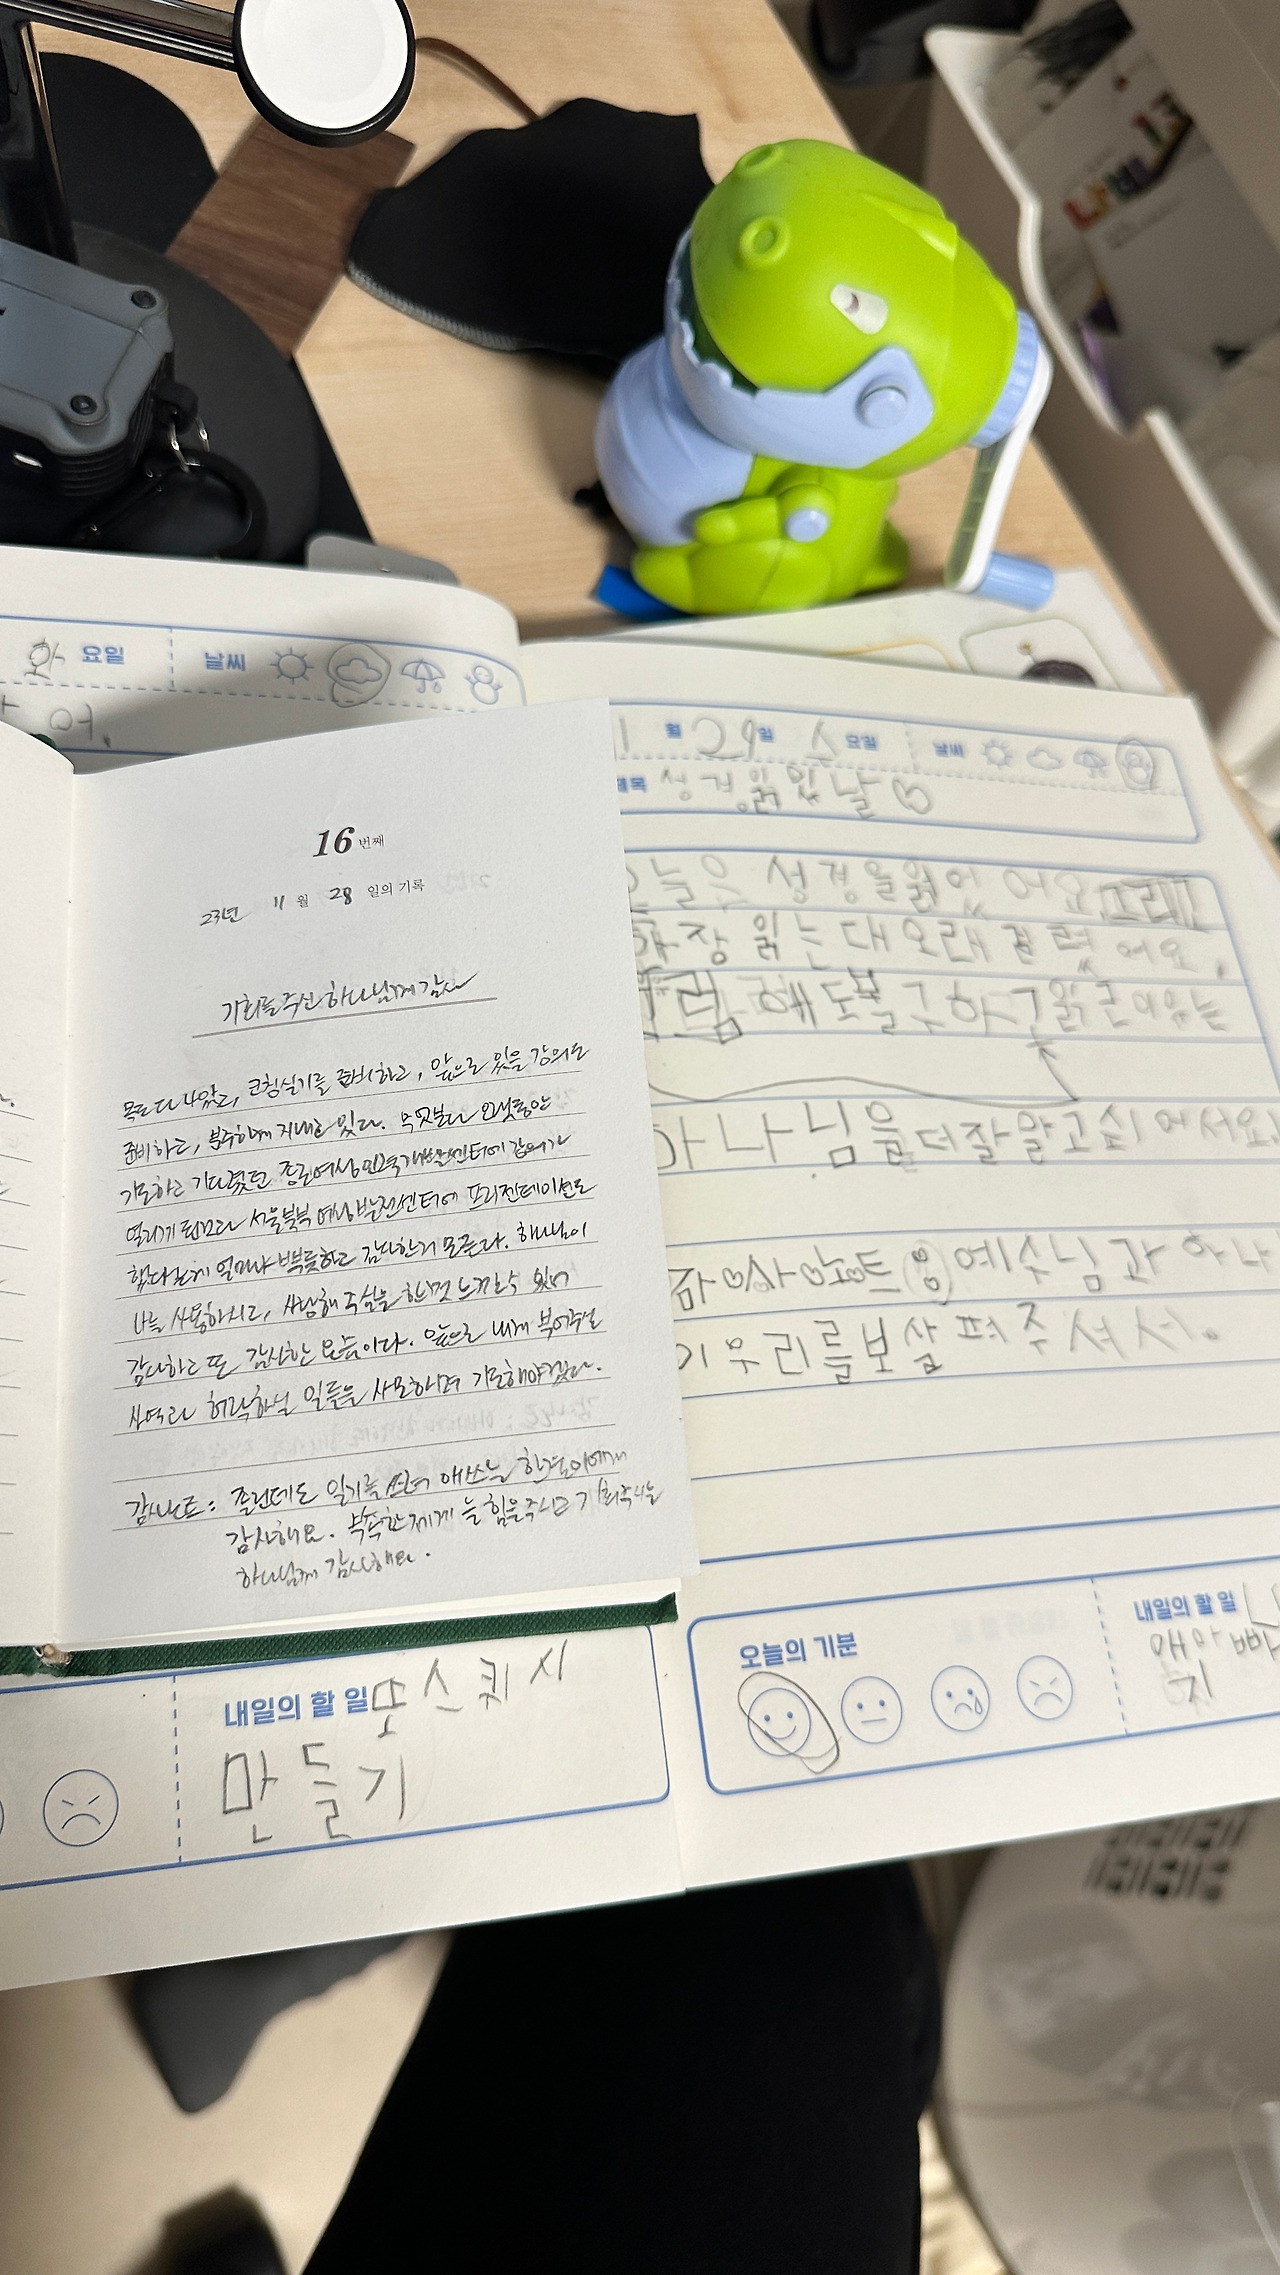 화 요일 날씨
어.
16 번째
23년 11 월 28 일의 기록
기회를 주신 하나님께 감사
목도 다 나았고, 코칭실기를 준비하고, 앞으로 있을 강의도
준비하고, 분주하게 지내고 있다. 무엇보다 오랫동안
기도하고 기다렸던 종로여성인력개발센터에 강의가
열리게 된것과 서울북부 여성발전센터에 프리젠테이션도
했다는게 얼마나 뿌듯하고 감사한지 모른다. 하나님이
나를 사용하시고, 사랑해 주심을 한껏 느끼고 있어
감사하고 또 감사한 요즘이다. 앞으로 내게 부어주실
사역과 허락하실 일들을 사모하며 기도해야겠다.
감사노트: 졸린데도 일기를 쓰려 애쓰는
감사해요. 부족한 제게 늘 힘을 주시고 기회주시는
하나님께 감사해요.
내일의 할 일 모스퀴시
만들기
1 월 29 일 수 요일 날씨
제목 성경읽었날
오늘은 성경을읽었어요
장 읽는대 오래 걸렸어요.
그래도불구하고읽은이유는
하나님을더잘알고싶어서요.
감사노트 예수님과 하나
이우리를보살펴주셔서.
오늘의 기분
내일의 할 일